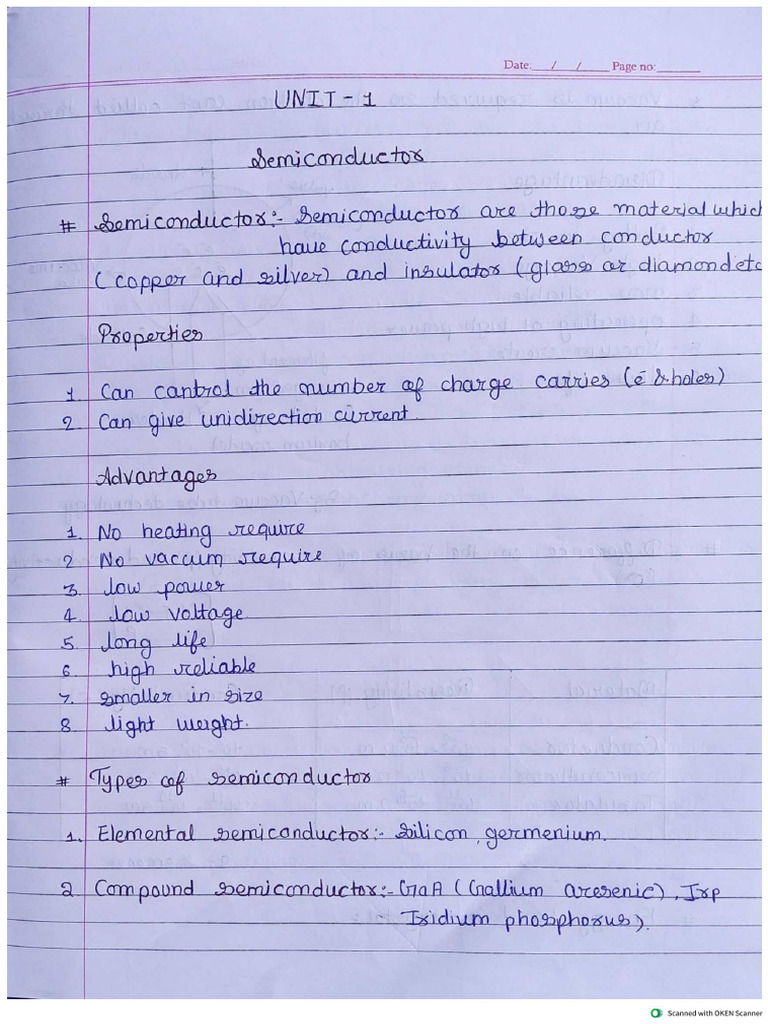 Date: __/__/____ Page no:______
UNIT-1
Semiconductor
# Semiconductor:- Semiconductor are those material which
have conductivity between conductor
(copper and silver) and insulator (glass or diamond etc
Properties
1 Can cantrol the number of charge carries (ē & holes)
2 Can give unidirection current
Advantages
1. No heating require
2 No vaccum require
3. low power
4. low voltage
5. long life
6 high reliable
7. smaller in size
8. light weight.
# Types of semiconductor
1. Elemental semiconductor:- Silicon, germenium.
2 Compound semiconductor:- GaA (Gallium aresenic), Irp
Iridium phosphorus).
Scanned with OKEN Scanner